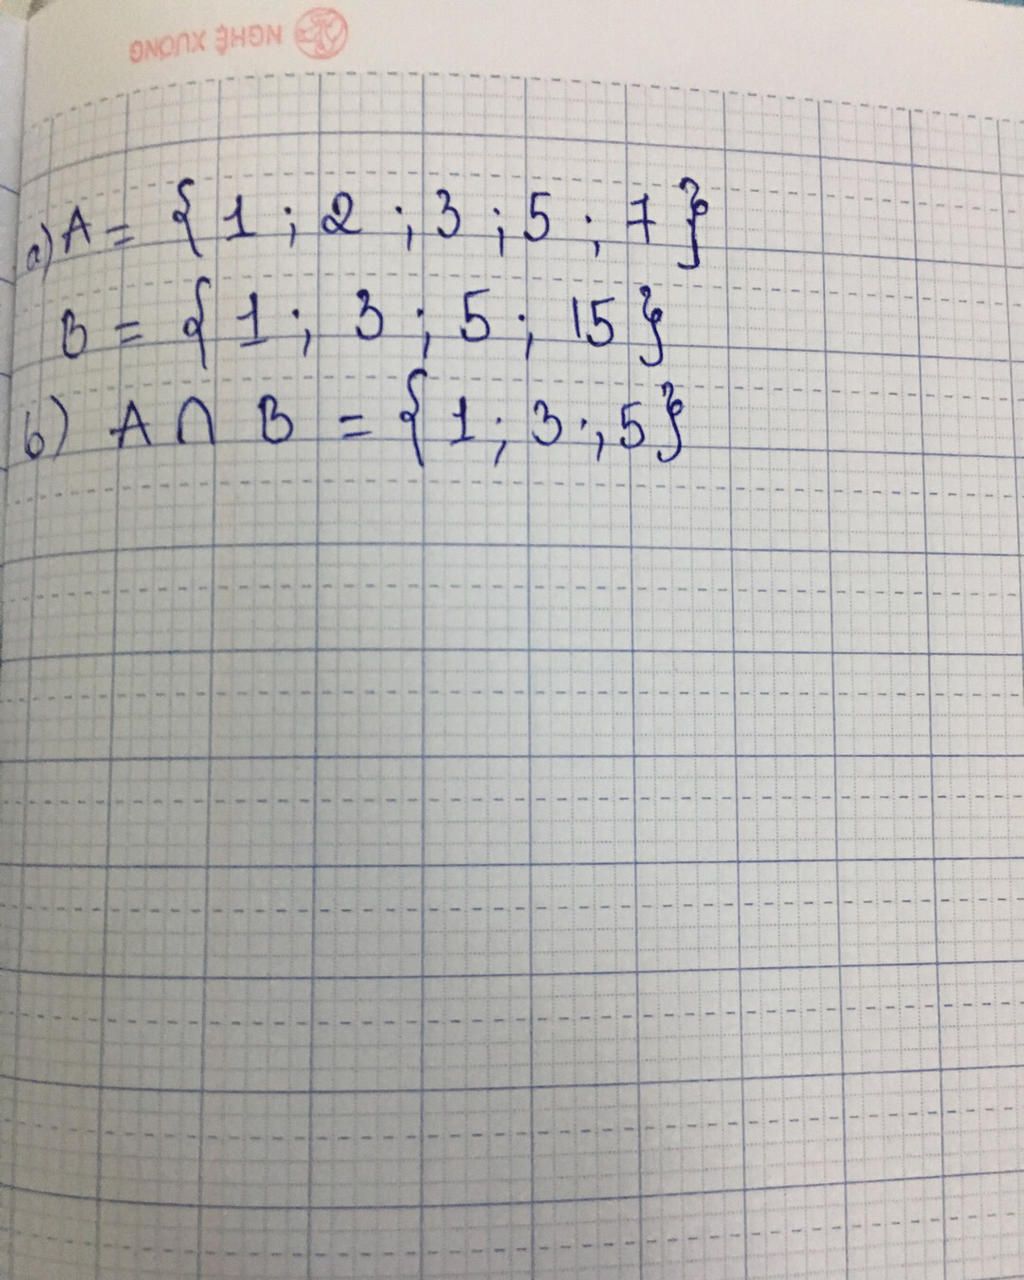 NGHỆ XUONG
a) A = {1 ; 2 ; 3 ; 5 ; 7}
B = {1 ; 3 ; 5 ; 15}
b) A ∩ B = {1 ; 3 ; 5}